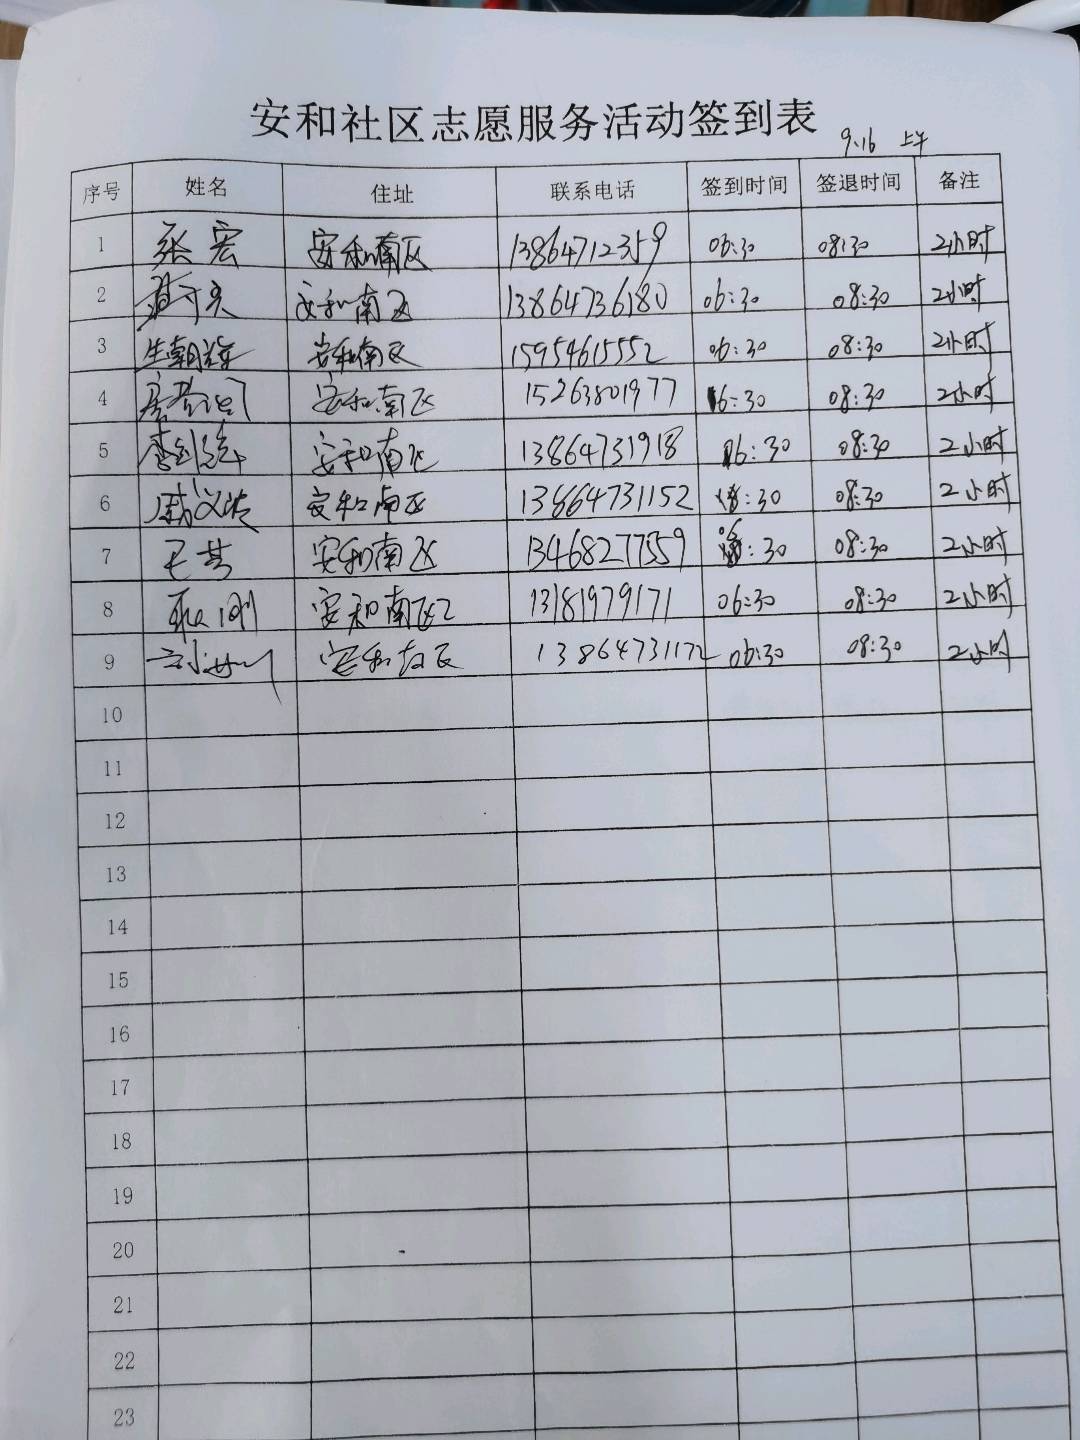 安和社区志愿服务活动签到表
9.16 上午
序号 姓名 住址 联系电话 签到时间 签退时间 备注
1 张宏 安和南区 13864712359 06:30 08:30 2小时
2 安和南区 13864736180 06:30 08:30 2小时
3 生朝辉 安和南区 15954615552 06:30 08:30 2小时
4 安和南区 15263801977 16:30 08:30 2小时
5 李 安和南区 13864731918 06:30 08:30 2小时
6 安和南区 13864731152 :30 08:30 2小时
7 王芸 安和南区 13468277559 :30 08:30 2小时
8 耿刚 安和南区 13181979171 06:30 08:30 2小时
9 刘 安和南区 13864731172 06:30 08:30 2小时
10
11
12
13
14
15
16
17
18
19
20
21
22
23